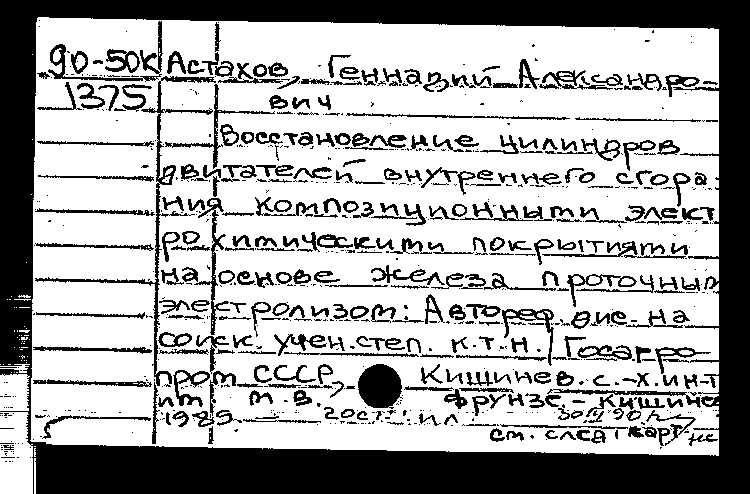 90-50к Астахов, Геннадий Александро-
1375 вич
Восстановление цилиндров
двигателей внутреннего сгора-
ния композиционными элект
рохимическими покрытиями
на основе железа проточным
электролизом: Автореф. дис. на
соиск. учен. степ. к.т.н. / Госагро-
пром СССР, Кишинев. с.-х. ин-т
им. М.В. Фрунзе. - Кишинев
1989. ил.
см. след. карт